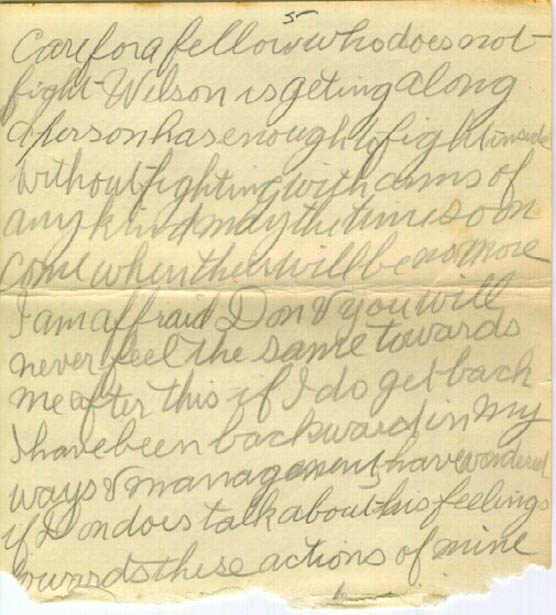 5
Care for a fellow who does not
fight Wilson is geting along
A person has enough to fight inside
without fighting with arms of
any kind may the time soon
come when there will be no more
I am affraid Don & you will
never feel the same towards
me after this if I do get back
I have been backward in my
ways & management, have wondered
if Don does talk about his feelings
towards these actions of mine